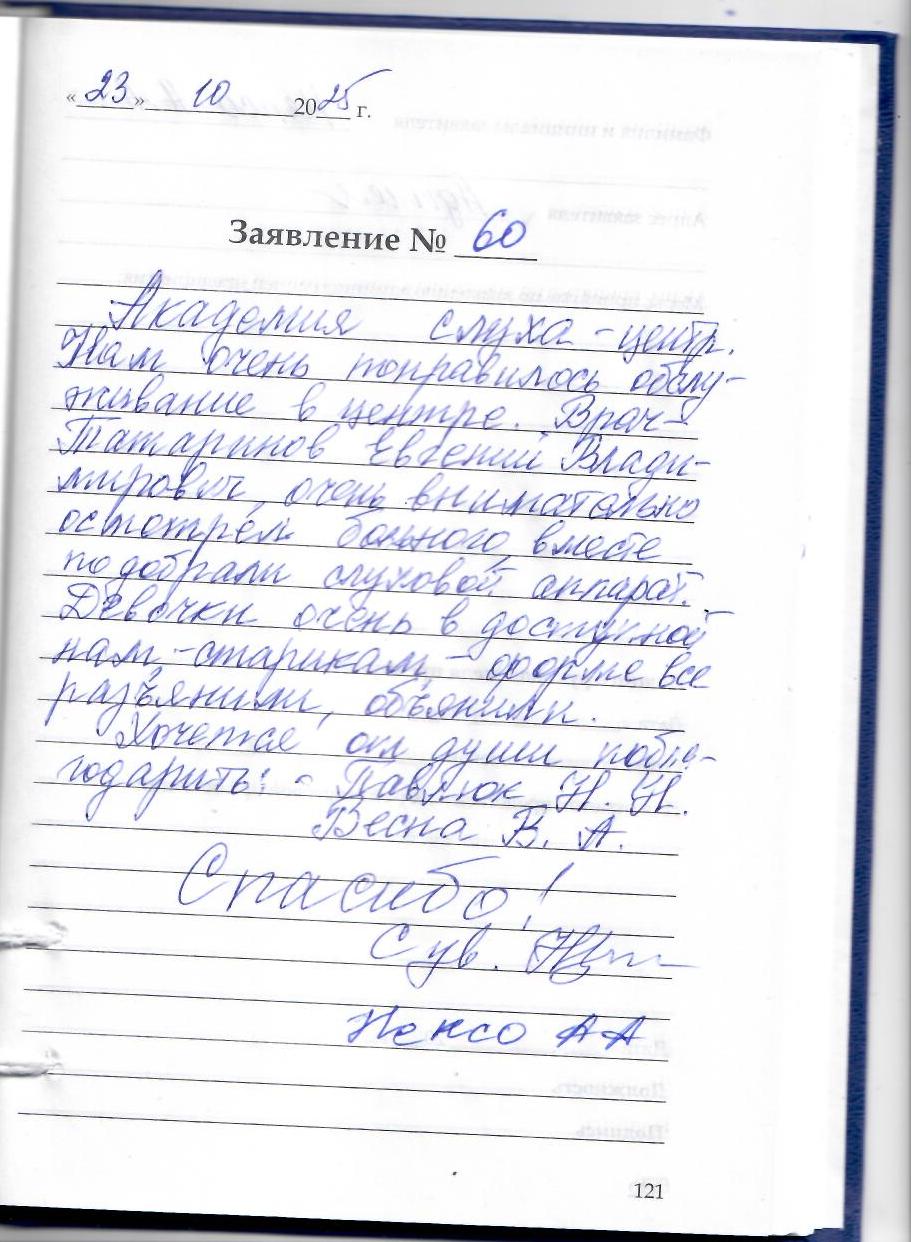 «23» 10 2025 г.
Заявление № 60
Академия слуха - центр.
Нам очень понравилось обслу-
живание в центре. Врач -
Татаринов Евгений Влади-
мирович, очень внимательно
осмотрел больного, вместе
подобрали слуховой аппарат.
Девочки очень в доступной
нам, - старикам, - форме все
разъяснили, объяснили.
Хочется от души побла-
годарить: - Павлюк Н. Н.
Весна В. А.
Спасибо!
С ув.
А А
121